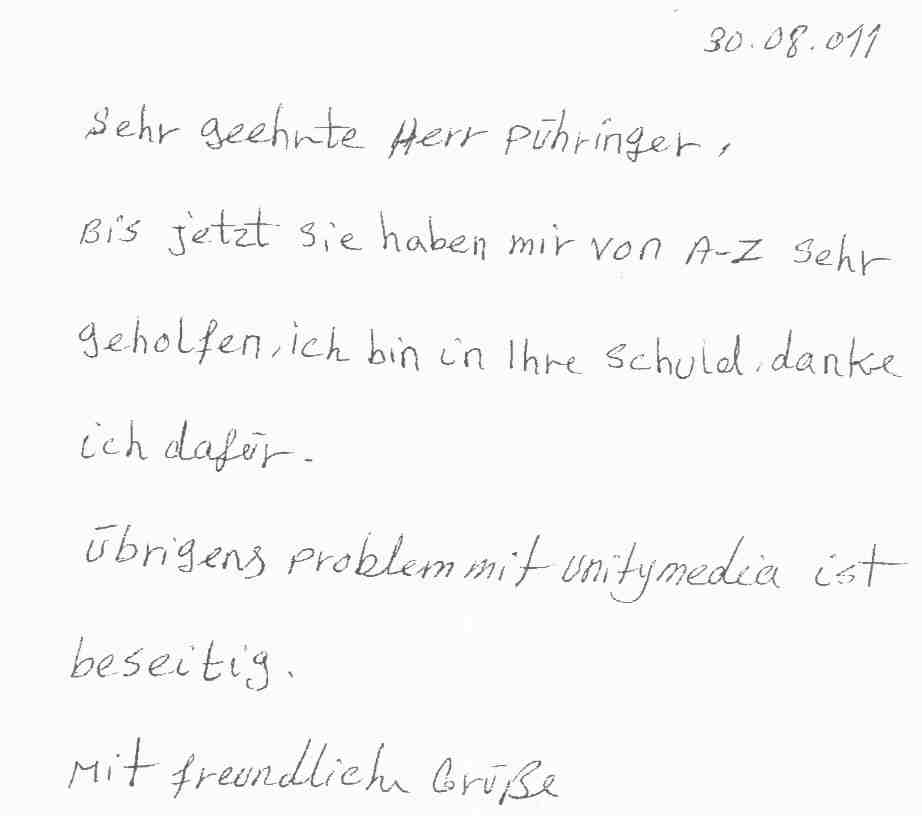 30.08.011
Sehr geehrte Herr Pühringer,
Bis jetzt sie haben mir von A-Z sehr
geholfen, ich bin in Ihre schuld, danke
ich dafür.
übrigens problem mit unitymedia ist
beseitig.
Mit freundlich Grüße